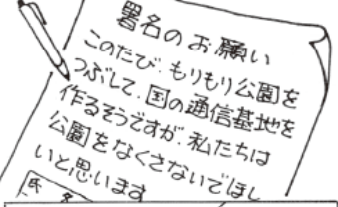 署名のお願い
このたび、もりもり公園を
つぶして、国の通信基地を
作るそうですが、私たちは
公園をなくさないでほし
いと思います
氏名